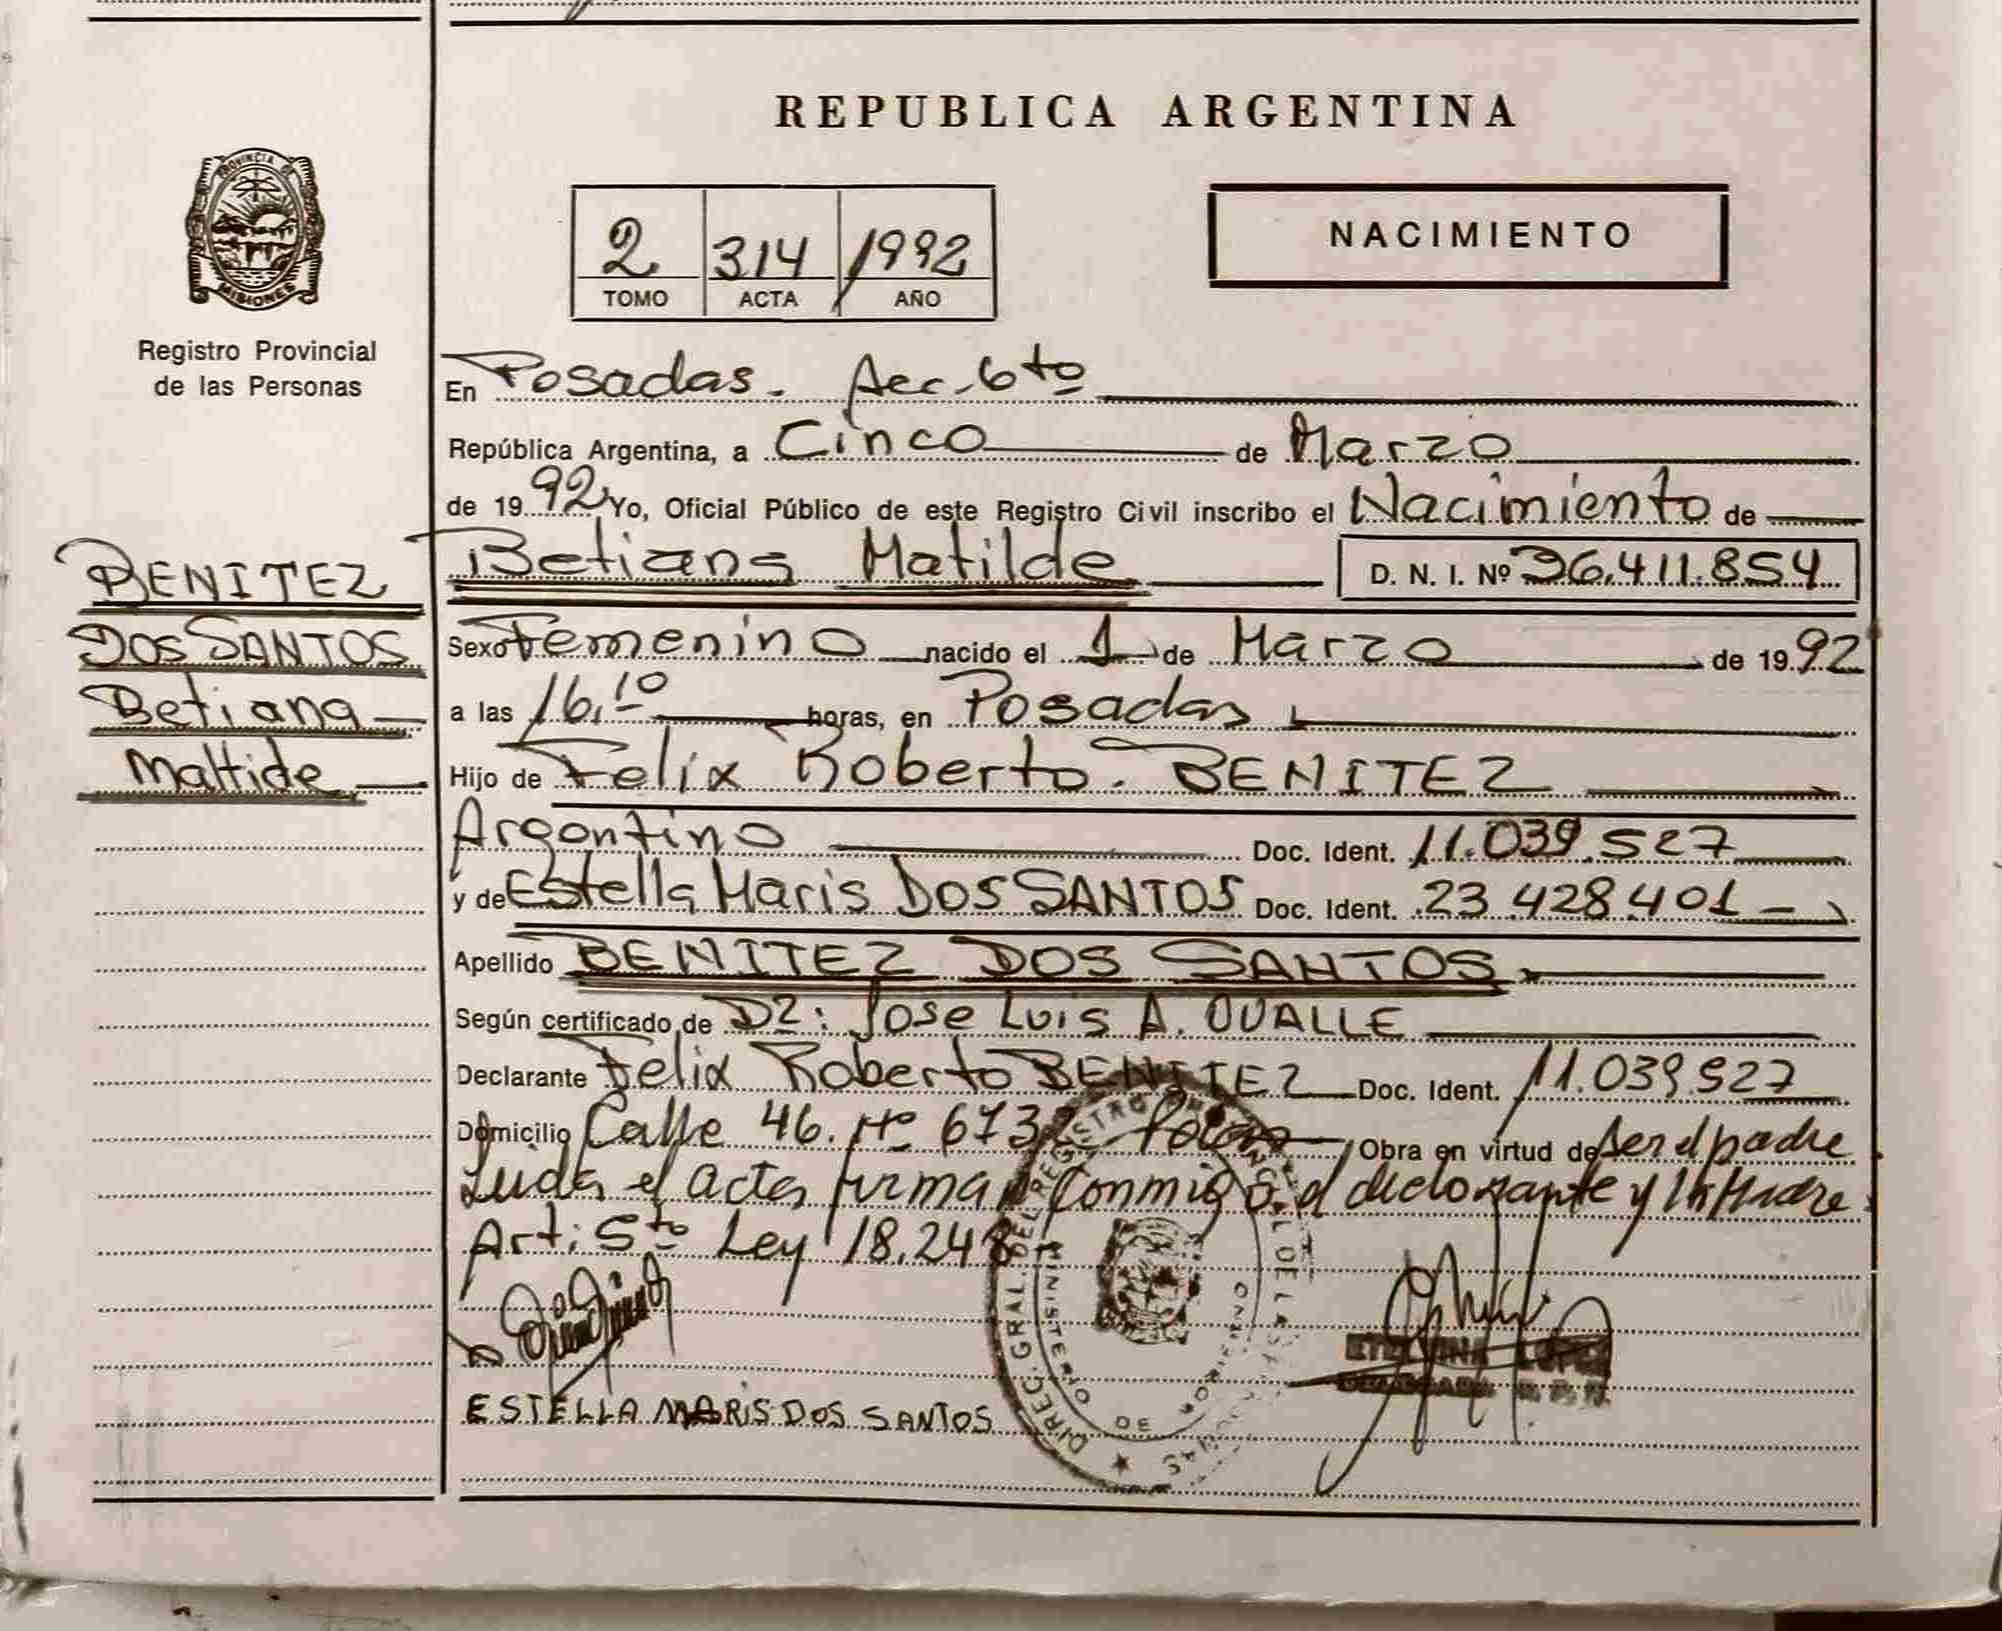 REPUBLICA ARGENTINA
PROVINCIA DE
MISIONES
Registro Provincial
de las Personas
2 314 1992
TOMO ACTA AÑO
NACIMIENTO
En Posadas. Sec. 6to
República Argentina, a Cinco de Marzo
de 1992 Yo, Oficial Público de este Registro Civil inscribo el Nacimiento de
BENITEZ
DOS SANTOS
Betiana
Maltide
Betiana Matilde D. N. I. Nº 36.411.854
Sexo Femenino nacido el 1 de Marzo de 1992
a las 16,10 horas, en Posadas
Hijo de Felix Roberto. BENITEZ
Argentino Doc. Ident. 11.039.527
y de Estella Maris DOS SANTOS Doc. Ident. 23.428.401
Apellido BENITEZ DOS SANTOS
Según certificado de Dr: Jose Luis A. OVALLE
Declarante Felix Roberto BENITEZ Doc. Ident. 11.039.527
Domicilio Calle 46. Nº 673 Obra en virtud de Ser el padre
Leida el acta firma Conmigo el declarante y la Madre
Art: 5to Ley 18.248
ESTELLA MARIS DOS SANTOS
ETELVINA LOPEZ
DIREC. GRAL. DEL REGISTRO PROVINCIAL DE LAS PERSONAS
MINISTERIO DE GOBIERNO